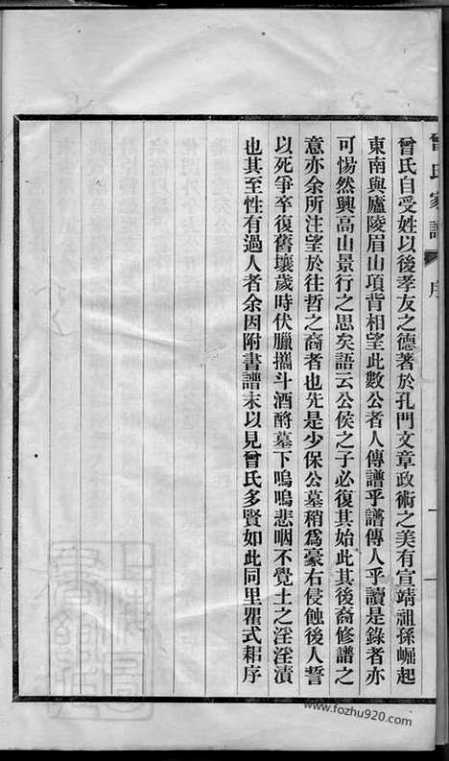 曾氏家譜 序
曾氏自受姓以後孝友之德著於孔門文章政術之美有宣靖祖孫崛起
東南與廬陵眉山項背相望此數公者人傳譜乎譜傳人乎讀是錄者亦
可惕然興高山景行之思矣語云公侯之子必復其始此其後裔修譜之
意亦余所注望於往哲之裔者也先是少保公墓稍爲豪右侵蝕後人誓
以死爭卒復舊壤歲時伏臘攜斗酒酹墓下嗚嗚悲咽不覺土之淫淫漬
也其至性有過人者余因附書譜末以見曾氏多賢如此同里瞿式耜序
www.fozhu920.com